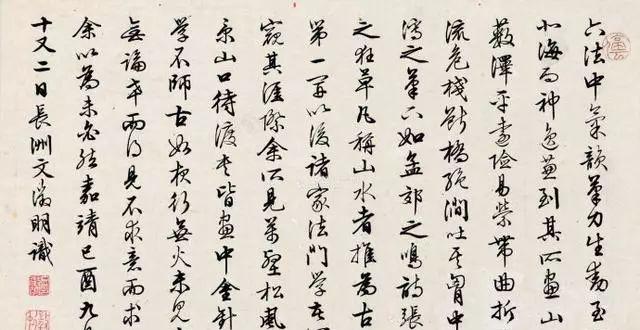 六法中氣韻筆力生動至
海而神逸到其所畫山
藪澤平遠險易縈帶曲折
流危棧斷橋絕澗吐其胸中
之筆下如孟郊之鳴詩張
之狂草凡稱山水者推為古
第一以後諸家法門學
窺其涯際余所見萬壑松風
山口待渡卷皆畫中金針
學不師古如夜行無火未見
無論幸而得見不求意而求
余以為未必然嘉靖己酉九月
十又二日長洲文徵明識